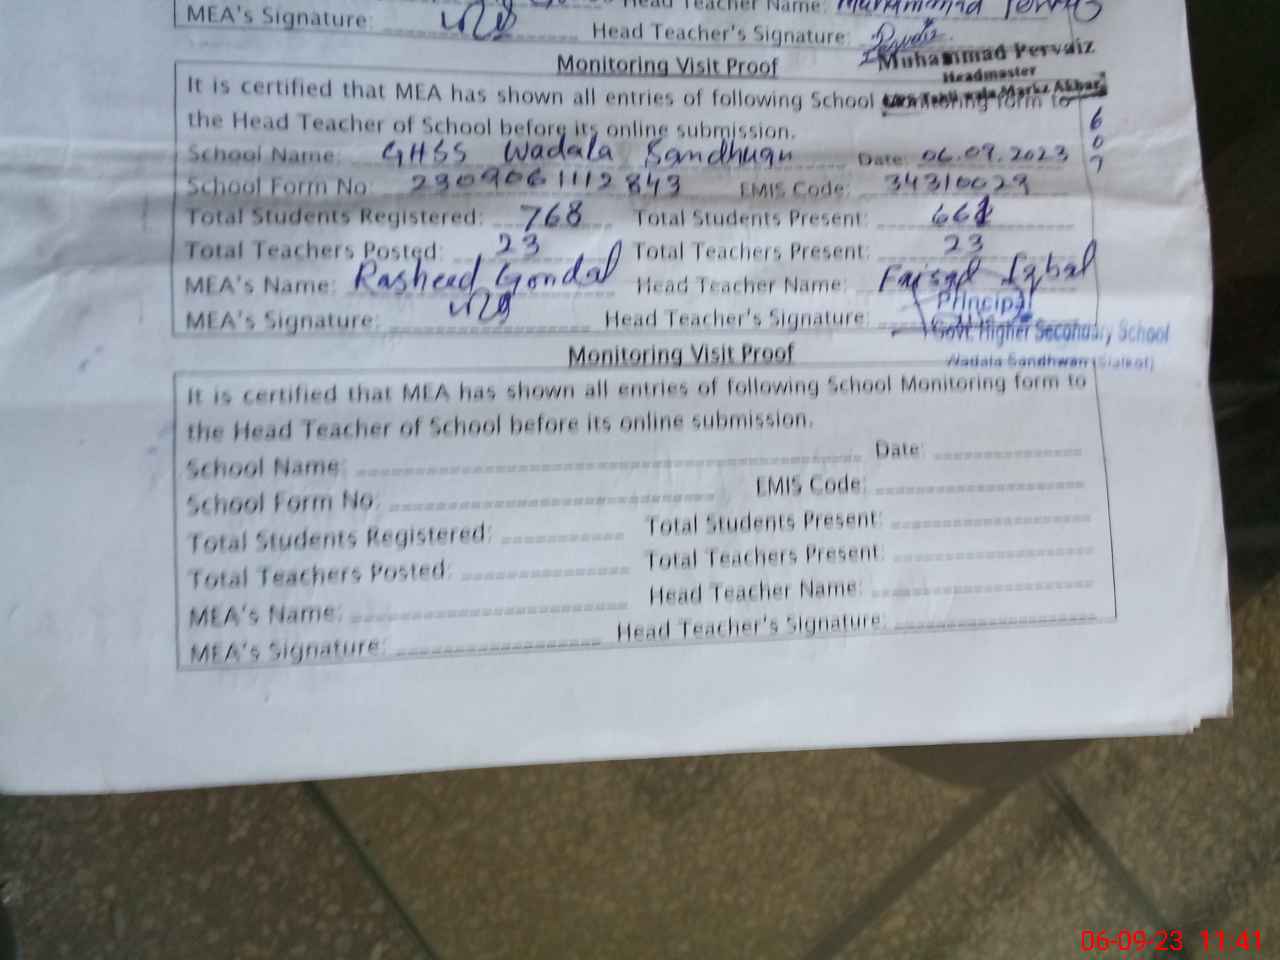 MEA's Signature: Head Teacher Name: Muhammad Pervaiz
Head Teacher's Signature: Pervaiz
Muhammad Pervaiz
Headmaster
Monitoring Visit Proof
It is certified that MEA has shown all entries of following School Monitoring form to
the Head Teacher of School before its online submission.
School Name: GHSS Wadala Sandhuan Date: 06.09.2023
School Form No: 2309061112843 EMIS Code: 34310029
Total Students Registered: 768 Total Students Present:
Total Teachers Posted: 23 Total Teachers Present: 23
MEA's Name: Rasheed Gondal Head Teacher Name: Faisal Iqbal
MEA's Signature: Head Teacher's Signature:
Principal
Govt. Higher Secondary School
Wadala Sandhwan (Sialkot)
6
0
7
Monitoring Visit Proof
It is certified that MEA has shown all entries of following School Monitoring form to
the Head Teacher of School before its online submission.
School Name: Date:
School Form No: EMIS Code:
Total Students Registered: Total Students Present:
Total Teachers Posted: Total Teachers Present:
MEA's Name: Head Teacher Name:
MEA's Signature: Head Teacher's Signature:
06-09-23 11:41